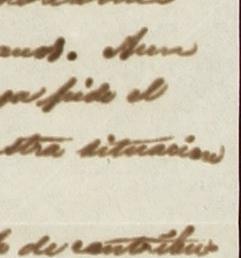 anos. Aun
ga pide el
stra situacion
de contribu